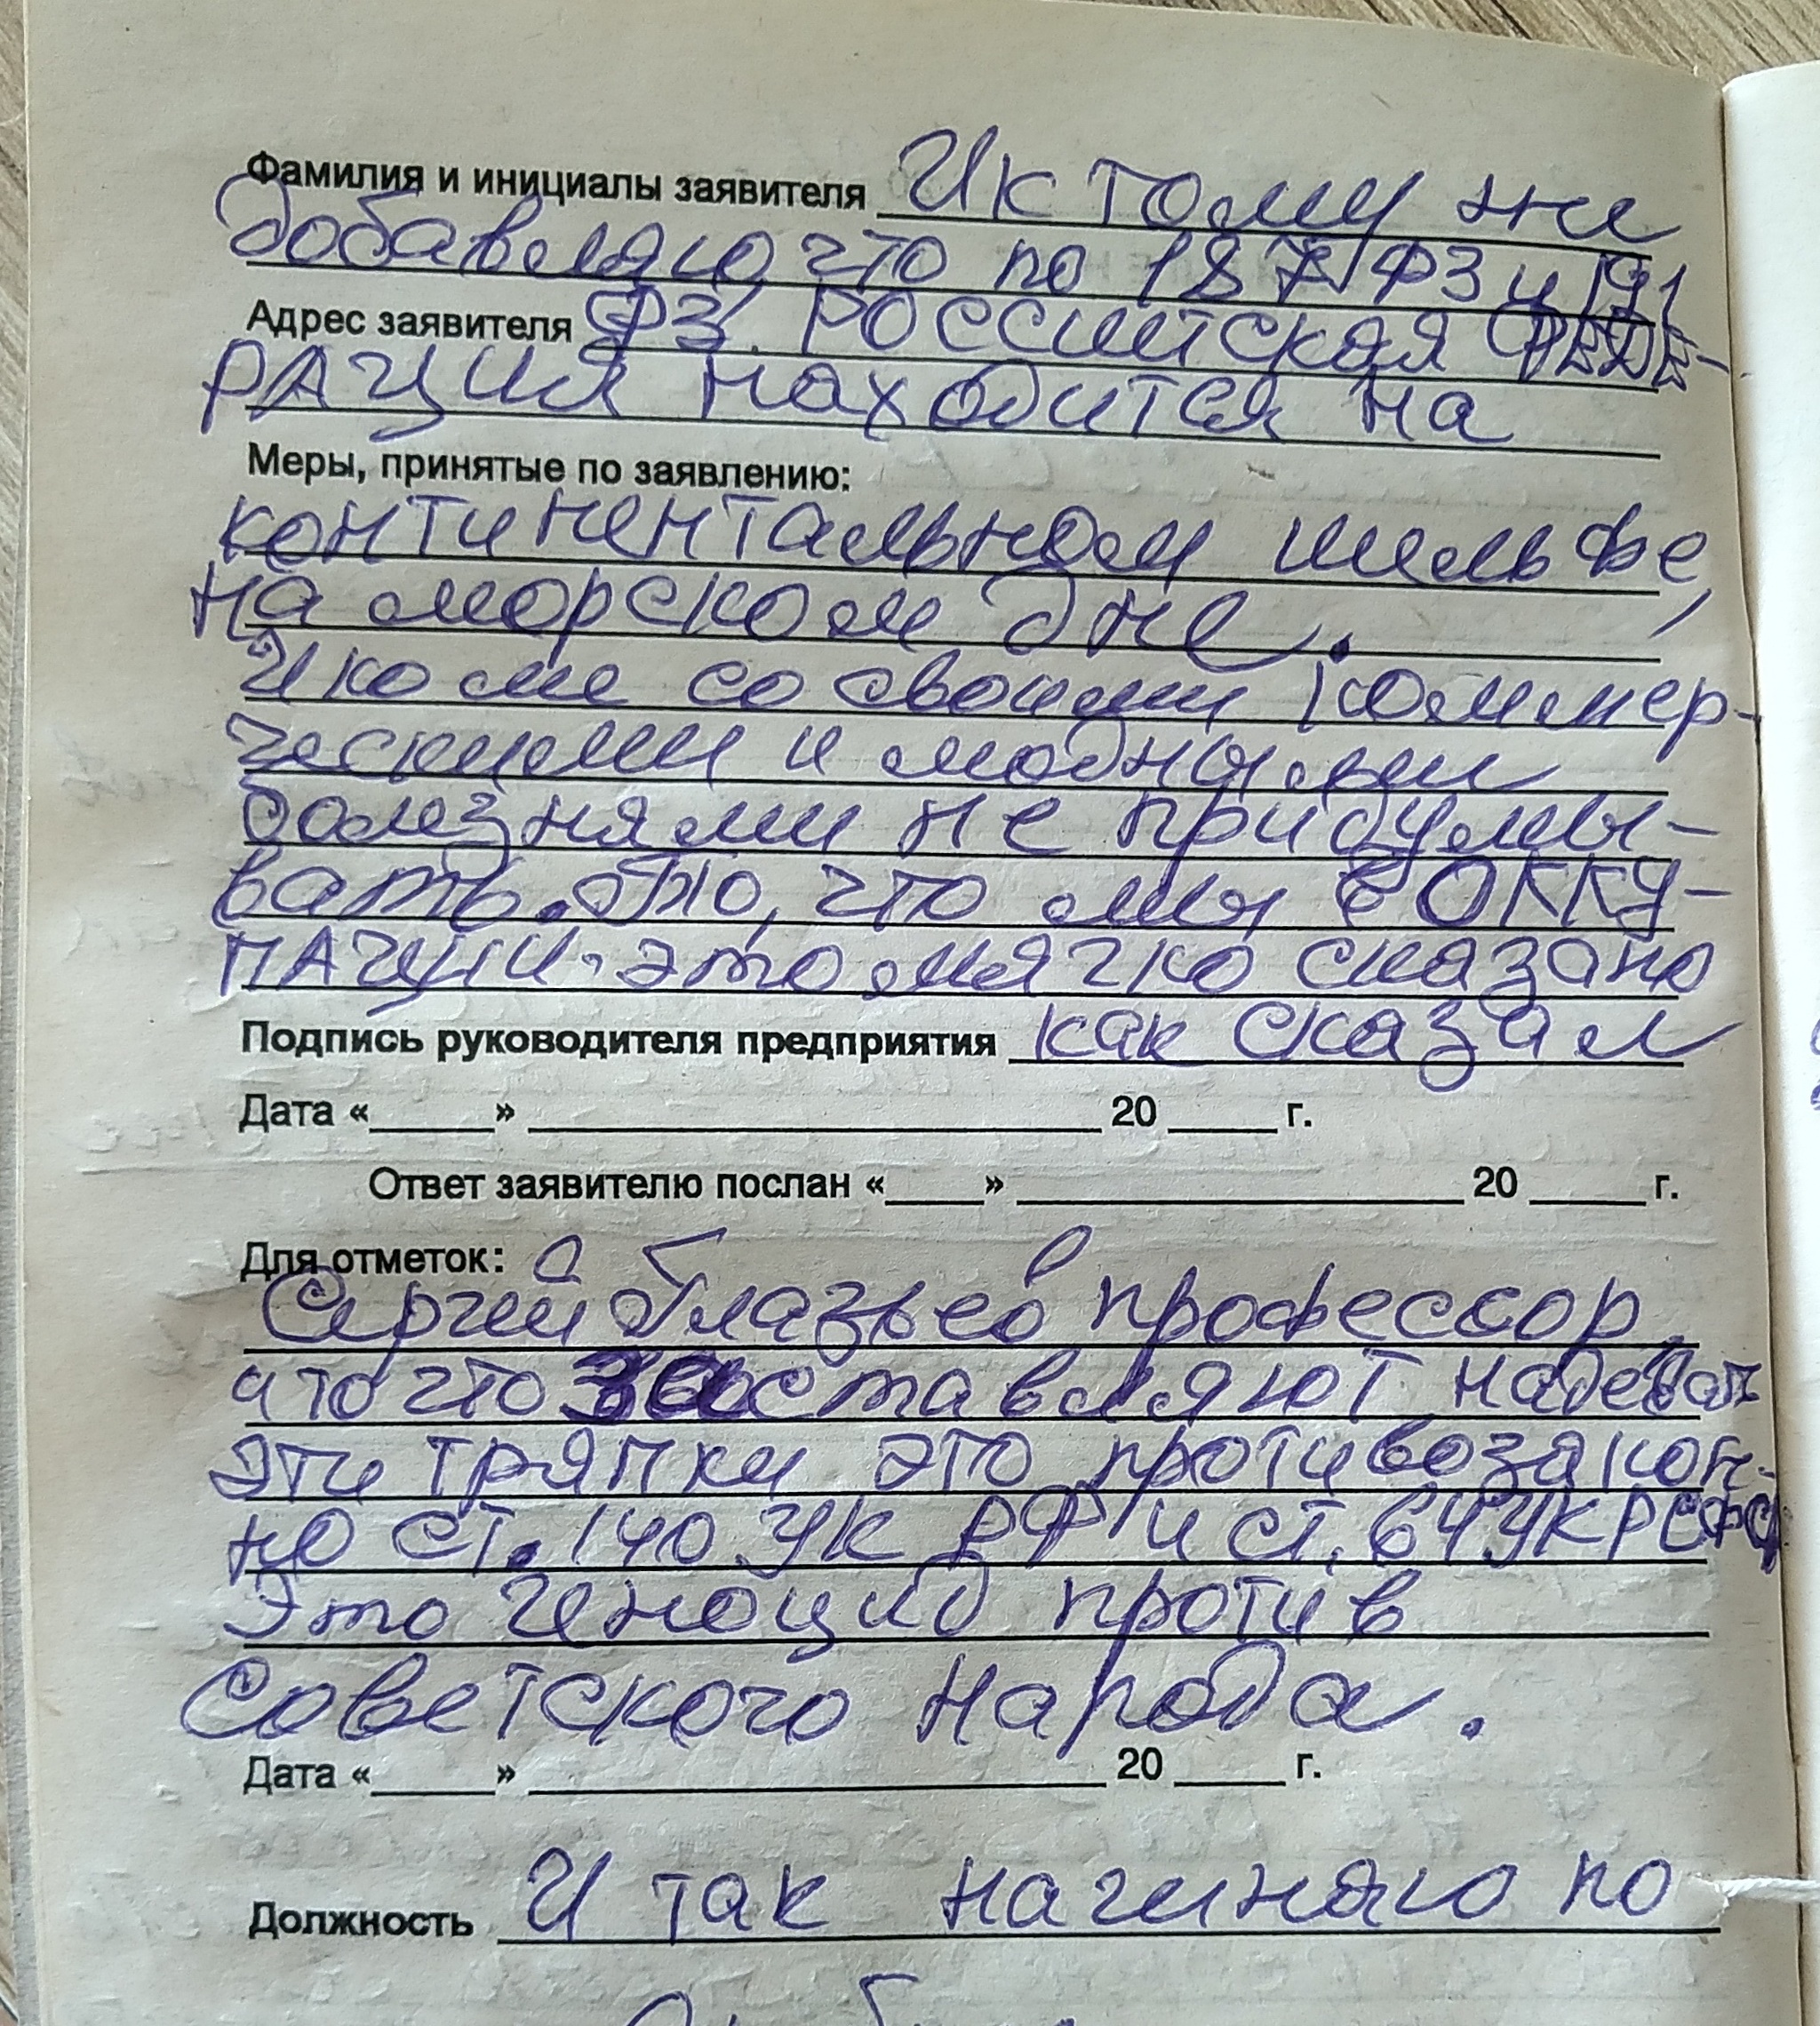 Фамилия и инициалы заявителя И к тому же
добавляю, что по 187 ФЗ и 191
Адрес заявителя ФЗ. РОссийская ФЕДЕ-
рАция находится на
Меры, принятые по заявлению:
континентальном шельфе,
на морском дне.
И ко мне со своими коммер-
ческими и модными
болезнями не придумы-
вать. то, что мы в ОККУ-
ПАции. это мягко сказано
Подпись руководителя предприятия как сказал
Дата «_____» ____________ 20 ____ г.
Ответ заявителю послан «____» ____________ 20 ____ г.
Для отметок:
Сергей Глазьев профессор,
что заставляют надевать
эти тряпки это противозакон-
но ст. 140 УК РФ и ст. 64 УК РСФСР
Это геноцид против
Советского народа.
Дата «_____» ____________ 20 ____ г.
Должность И так начиняю по